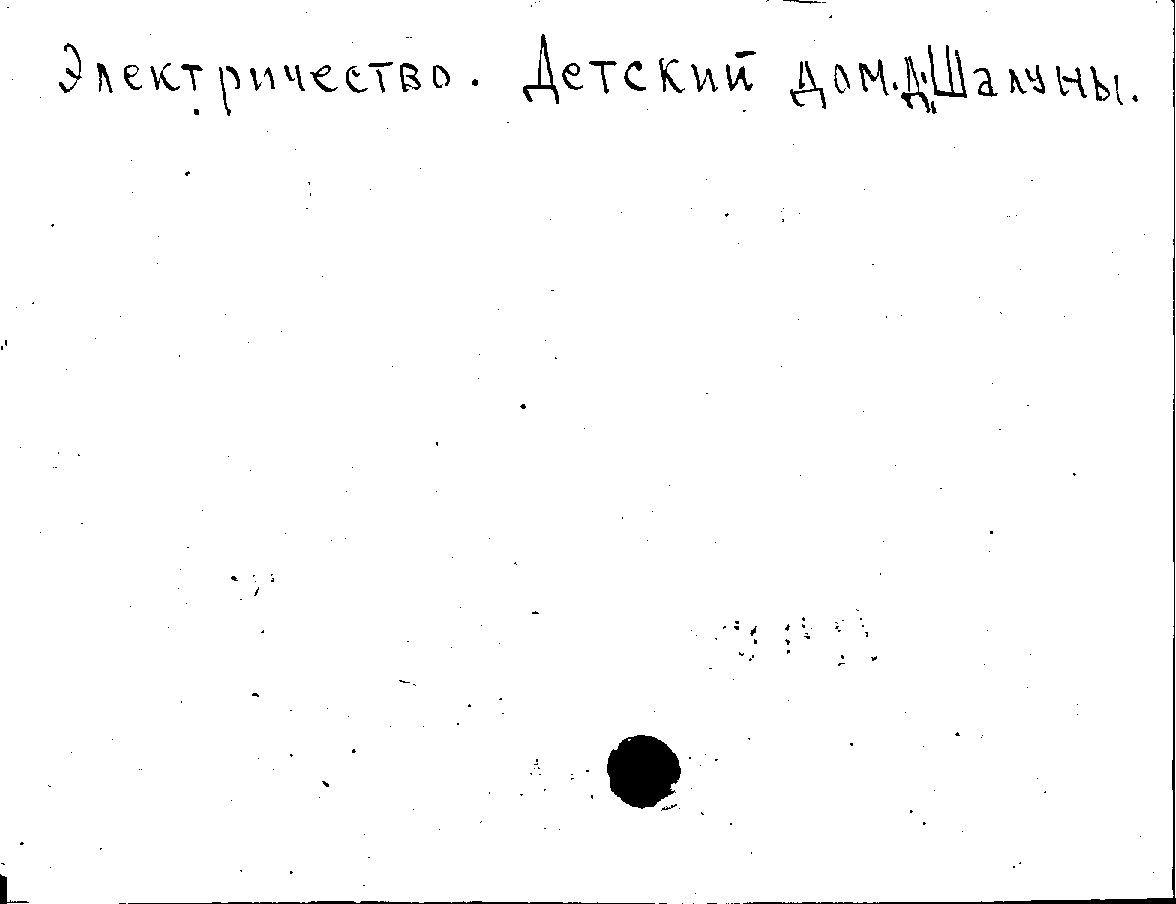 Электричество. Детский дом. д. Шалуны.